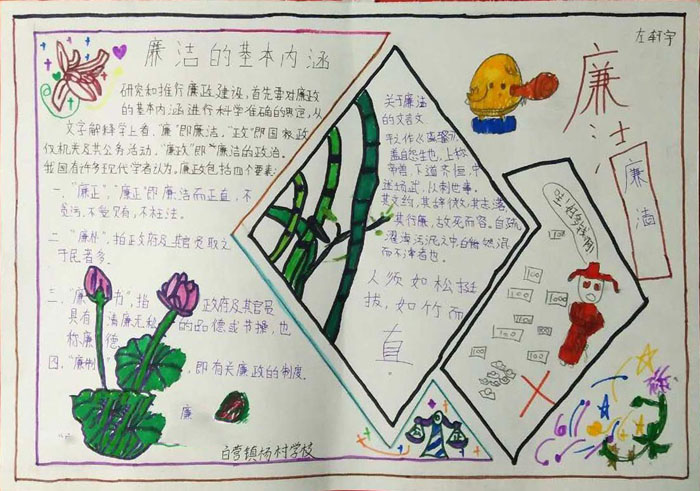 廉洁的基本内涵
研究和推行廉政建设,首先要对廉政
的基本内涵进行科学准确的界定,从
文字解释学上看,"廉"即廉洁。"政"即国权政
仅机关及其公务活动,"廉政"即"廉洁的政治。
我国有许多现代学者认为,廉政包括四个要素:
一、"廉正","廉正"即廉洁而正直,不
贪污,不受贿,不枉法。
二、"廉朴",指政府及其官员取之
于民者多。
三、"廉 力",指 政府及其官员
具有 清廉无私 的品德或节操,也
称廉 德
四、"廉制 ,即有关廉政的制度。
廉
白营镇杨村学校
关于廉洁
的文言文
帝喾,下道齐桓,中
述汤武,以刺世事。
其文约,其辞微,其志洁,
其行廉,
而不滓者也。
人须如松挺
拔,如竹而
直
左轩宇
廉
洁
廉洁
100
100
100
100
100
100
100